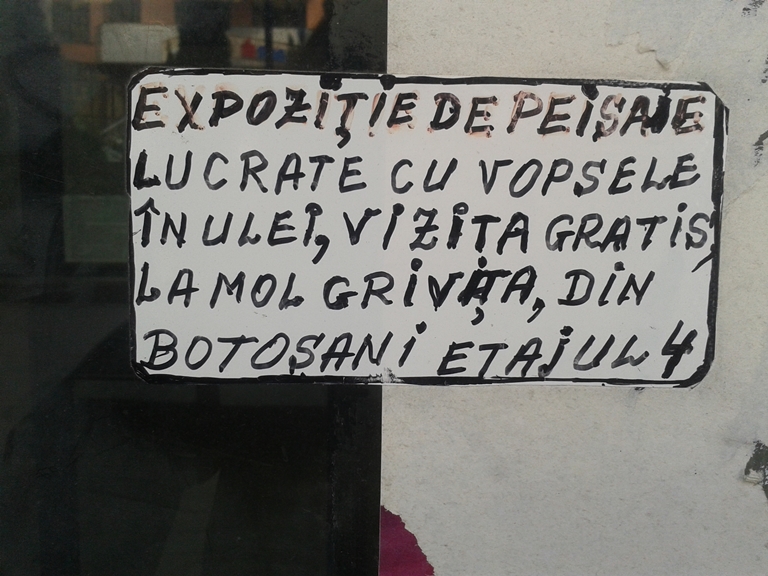 EXPOZIȚIE DE PEISAJE
LUCRATE CU VOPSELE
ÎN ULEI, VIZITA GRATIS,
LA MOL GRIVIȚA, DIN
BOTOȘANI ETAJUL 4